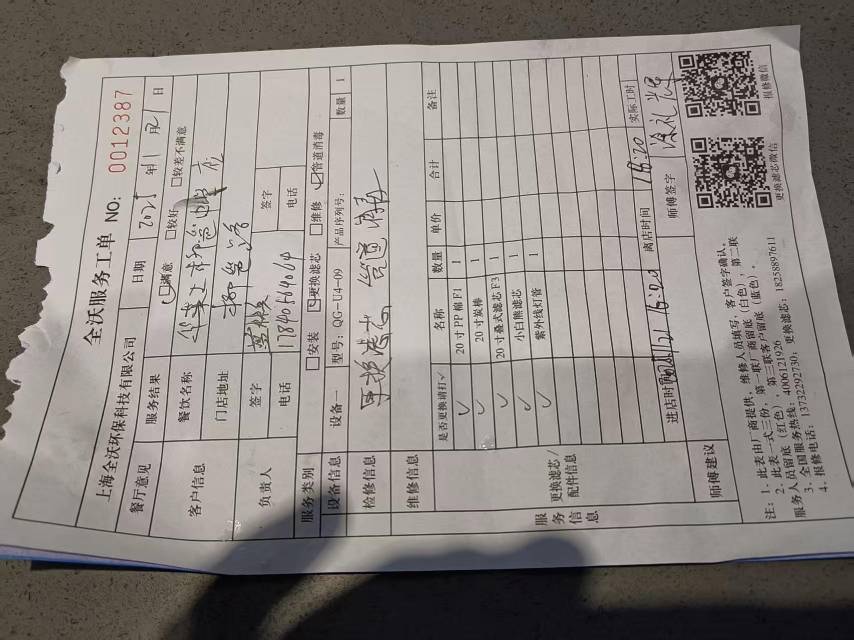 全沃服务工单 NO: 0012387
上海全沃环保科技有限公司 日期 2025年11月21日
餐厅意见 服务结果 ☑满意 □较好 □较差不满意
客户信息 餐饮名称
门店地址
负责人 签字 签字
电话 17840564064 电话
服务类别 □安装 ☑更换滤芯 □维修 ☑管道消毒
设备信息 设备一 型号: QG-U4-09 产品序列号: 数量 1
检修信息 更换滤芯 管道消毒
维修信息
服务信息 更换滤芯/配件信息 是否更换请打√ 名称 数量 单价 合计 备注
✓ 20寸PP棉F1 1
✓ 20寸炭棒 1
✓ 20寸叠式滤芯F3 1
✓ 小白熊滤芯 1
✓ 紫外线灯管 1
进店时间 离店时间 实际工时
师傅建议 师傅签字
注: 1、此表由厂商提供，维修人员填写，客户签字确认。
2、此表一式三份，第一联厂商留底（白色），第二联
服务人员留底（红色），第三联客户留底（蓝色）。
3、全国服务热线: 4006121926
4、报修电话: 13732292730; 更换滤芯: 18258897611
更换滤芯微信 报修微信